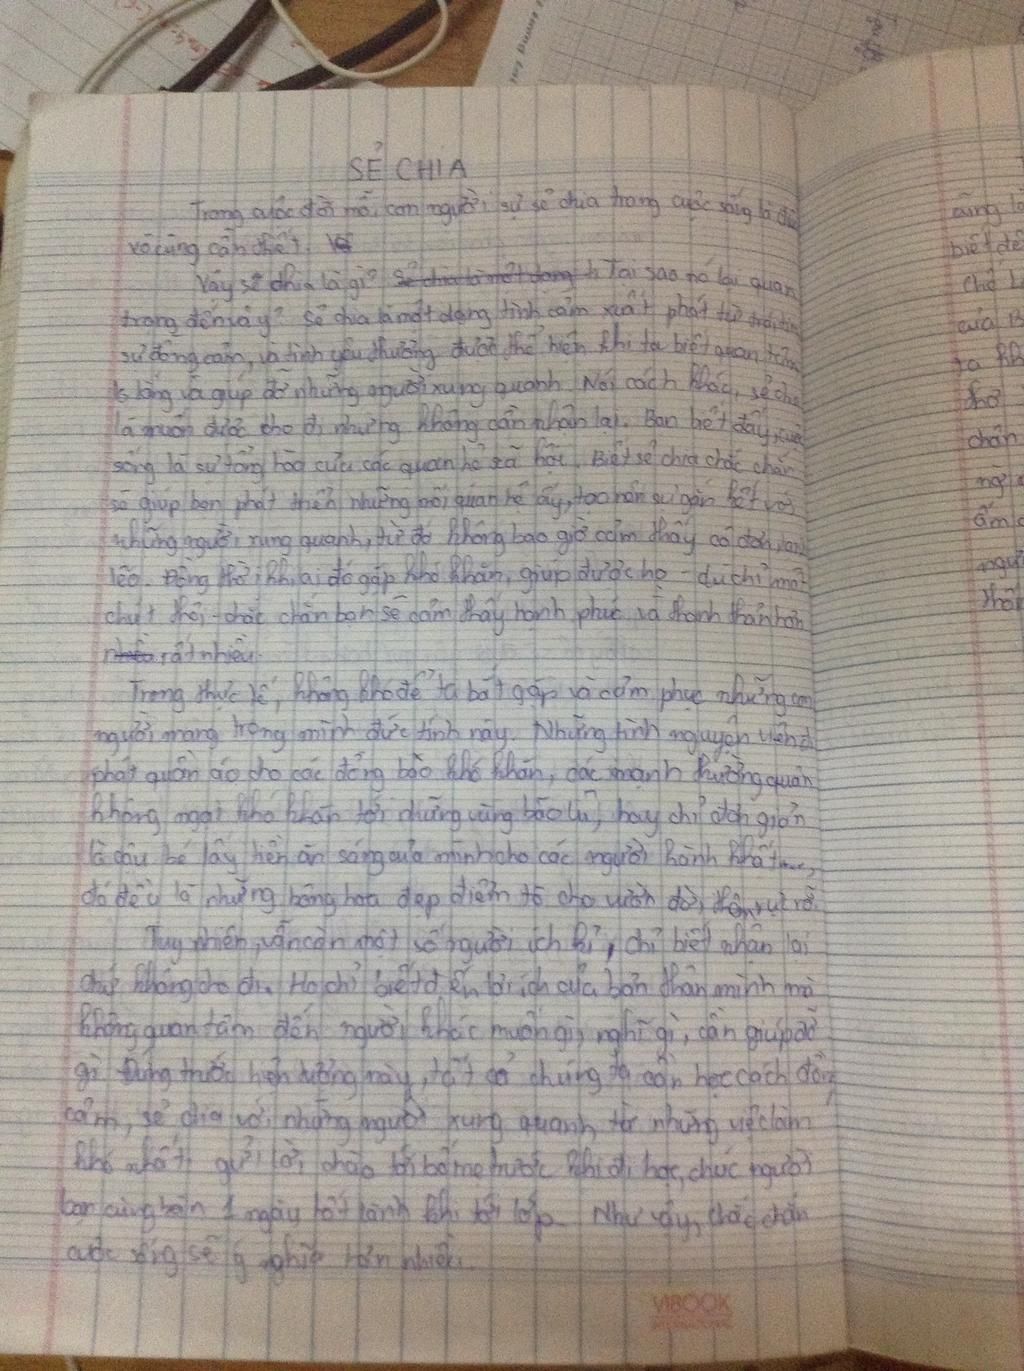 SẺ CHIA
Trong cuộc đời mỗi con người, sự sẻ chia trong cuộc sống là điều
vô cùng cần thiết.
Vậy sẻ chia là gì? Sẻ chia là một dạng Tại sao nó lại quan
trọng đến vậy? Sẻ chia là một dạng tình cảm xuất phát từ trái tim
sự đồng cảm, và tình yêu thương được thể hiện khi ta biết quan tâm
lo lắng và giúp đỡ những người xung quanh. Nói cách khác, sẻ chia
là muốn được cho đi nhưng không cần nhận lại. Bạn biết đấy, cuộc
sống là sự tổng hòa của các quan hệ xã hội. Biết sẻ chia chắc chắn
sẽ giúp bạn phát triển những mối quan hệ ấy, tạo nên sự gắn kết với
những người xung quanh, từ đó không bao giờ cảm thấy cô đơn, lạnh
lẽo. Đồng thời, khi ai đó gặp khó khăn, giúp được họ - dù chỉ một
chút thôi - chắc chắn bạn sẽ cảm thấy hạnh phúc và thanh thản hơn
rất nhiều.
Trong thực tế, không khó để ta bắt gặp và cảm phục những con
người mang trong mình đức tính này. Những tình nguyện viên đi
phát quần áo cho các đồng bào khó khăn, các mạnh thường quân
không ngại khó khăn tới những vùng bão lũ, hay chỉ đơn giản
là cậu bé lấy tiền ăn sáng của mình cho các người hành khất...,
đó đều là những bông hoa đẹp điểm tô cho vườn đời thêm rực rỡ.
Tuy nhiên, vẫn còn một số người ích kỉ, chỉ biết nhận lại
chứ không cho đi. Họ chỉ biết đến lợi ích của bản thân mình mà
không quan tâm đến người khác muốn gì, nghĩ gì, cần giúp đỡ
gì. Đứng trước hiện tượng này, tất cả chúng ta cần học cách đồng
cảm, sẻ chia với những người xung quanh từ những việc làm
nhỏ nhất: gửi lời chào tới bố mẹ trước khi đi học, chúc người
bạn cùng bàn 1 ngày tốt lành khi tới lớp. Như vậy, chắc chắn
cuộc sống sẽ ý nghĩa hơn nhiều.
VIBOOK